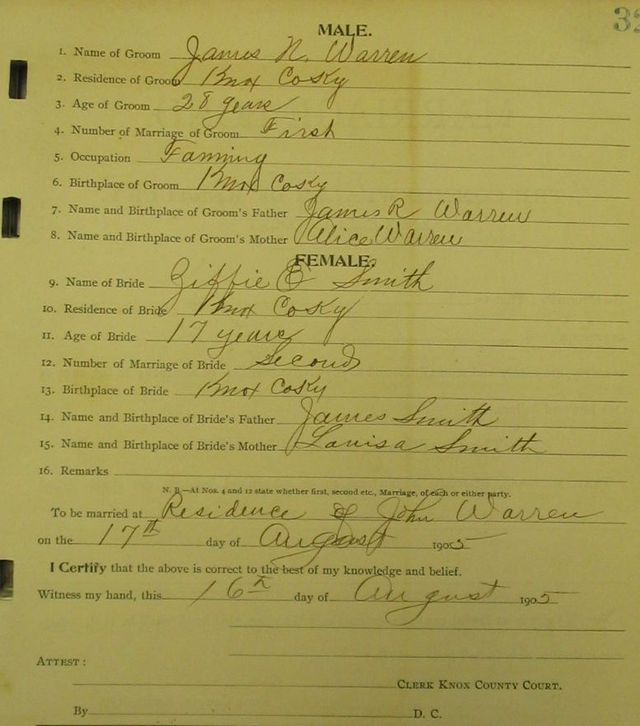 32
MALE.
1. Name of Groom James N. Warren
2. Residence of Groom Knox Co Ky
3. Age of Groom 28 years
4. Number of Marriage of Groom First
5. Occupation Farming
6. Birthplace of Groom Knox Co Ky
7. Name and Birthplace of Groom's Father James R Warren
8. Name and Birthplace of Groom's Mother Alice Warren
FEMALE.
9. Name of Bride E Smith
10. Residence of Bride Knox Co Ky
11. Age of Bride 17 years
12. Number of Marriage of Bride Second
13. Birthplace of Bride Knox Co Ky
14. Name and Birthplace of Bride's Father James Smith
15. Name and Birthplace of Bride's Mother Louisa Smith
16. Remarks
N. B.—At Nos. 4 and 12 state whether first, second etc., Marriage, of each or either party.
To be married at Residence of John Warren
on the 17th day of August 1905
I Certify that the above is correct to the best of my knowledge and belief.
Witness my hand, this 16th day of August 1905
ATTEST:
CLERK KNOX COUNTY COURT.
By D. C.